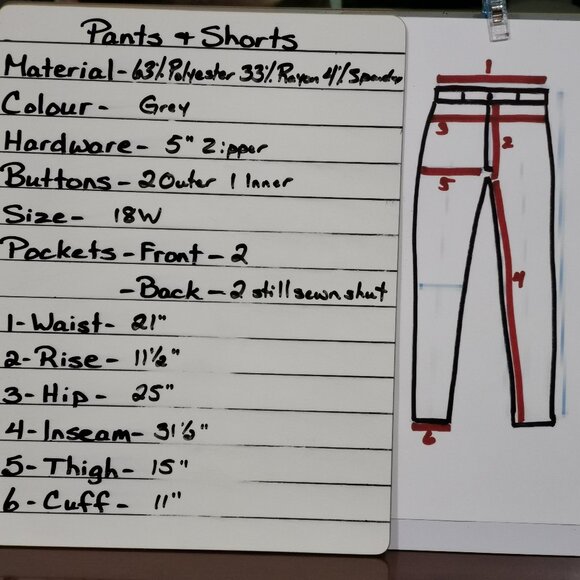 Pants & Shorts
Material - 63% Polyester 33% Rayon 4% Spandex
Colour - Grey
Hardware - 5" Zipper
Buttons - 2 Outer 1 Inner
Size - 18W
Pockets - Front - 2
- Back - 2 still sewn shut
1 - Waist - 21"
2 - Rise - 11½"
3 - Hip - 25"
4 - Inseam - 31½"
5 - Thigh - 15"
6 - Cuff - 11"
1
3
2
5
4
6